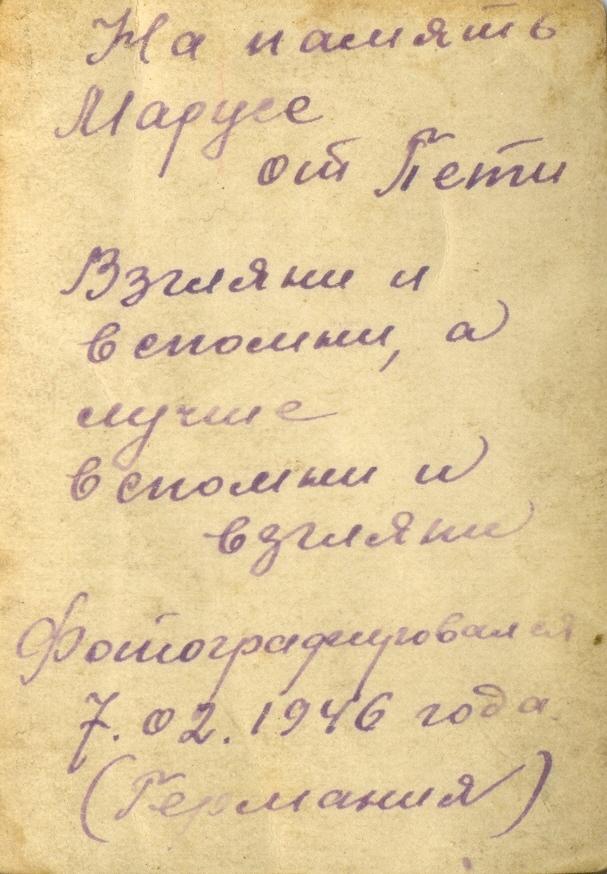 На память
Марусе
от Пети
Взгляни и
вспомни, а
лучше
вспомни и
взгляни
Фотографировался
7.02.1946 года
(Германия)